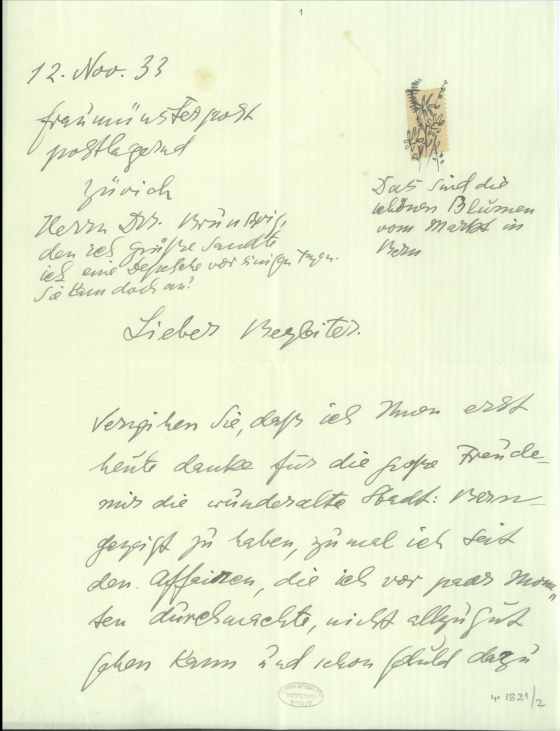 1
12. Nov. 33
Fraumünsterpost
postlagernd
Zürich
Herrn Drr. Brünswig,
den ich grüße sandte
ich eine Depesche vor einigen Tagen.
Sie kam doch an?
Das sind die
schönen Blumen
vom Markt in
Bern
Lieber Begleiter.
Verzeihen Sie, daß ich Ihnen erst
heute danke für die große Freude –
mir die wunderalte Stadt: Bern –
gezeigt zu haben, zumal ich seit
den Affairen, die ich vor paar Mona„
ten durchmachte, nicht allzugut
gehen kann und schon Geduld dazu
1821/2